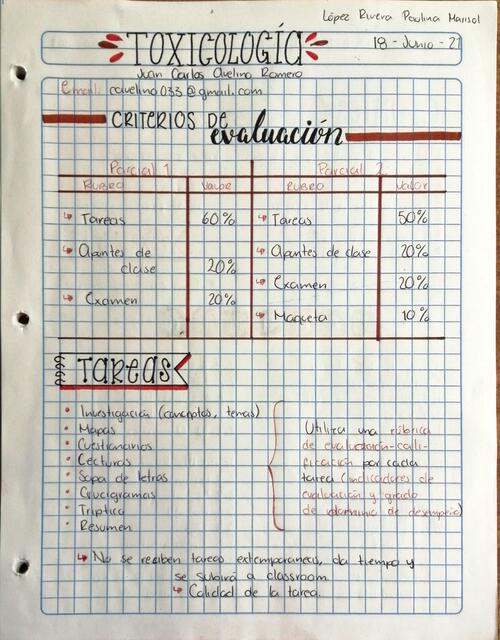 López Rivera Paulina Marisol
TOXICOLOGÍA
18 - Junio - 21
Juan Carlos Avelino Romero
Email: cavelino033@gmail.com
CRITERIOS DE evaluación
Parcial 1 Parcial 2
Rubro Valor Rubro Valor
Tareas 60% Tareas 50%
Apuntes de clase 20% Apuntes de clase 20%
Examen 20% Examen 20%
Maqueta 10%
TAREAS
Investigación (conceptos, temas)
Mapas
Cuestionarios
Lecturas
Sopa de letras
Crucigramas
Triptico
Resumen
Utiliza una rúbrica
de evaluación-cali-
ficación por cada
tarea (indicadores de
evaluación y grado
de dominio de desempeño)
No se reciben tareas extemporaneas, da tiempo y
se subirá a classroom.
Calidad de la tarea.